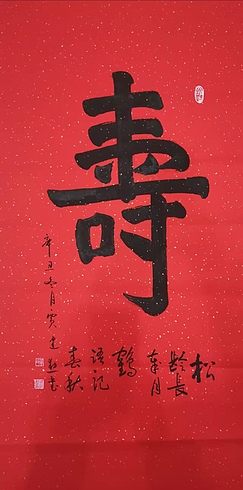 壽
松
齡長
歲月
鶴
語記
春秋
辛丑冬月
書